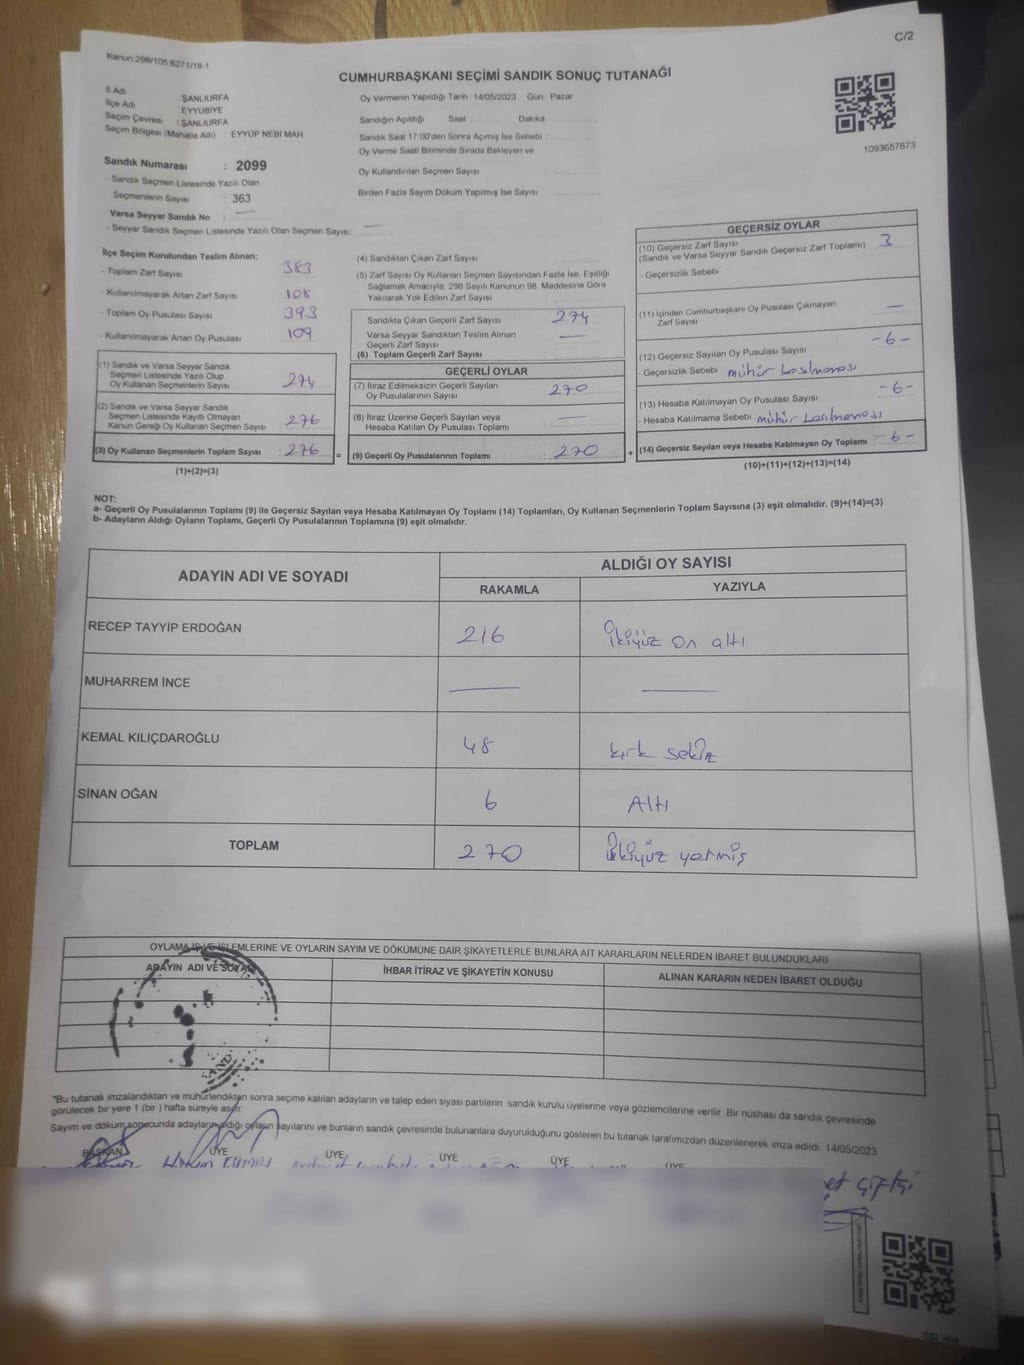 C/2
Kanun:298/105;6271/18-1
CUMHURBAŞKANI SEÇİMİ SANDIK SONUÇ TUTANAĞI
İl Adı : ŞANLIURFA
İlçe Adı : EYYÜBİYE
Seçim Çevresi : ŞANLIURFA
Seçim Bölgesi (Mahalle Adı) : EYYÜP NEBİ MAH.
Oy Vermenin Yapıldığı Tarih 14/05/2023 Gün : Pazar
Sandığın Açıldığı Saat Dakika
Sandık Saat 17:00'den Sonra Açımış İse Sebebi :
Oy Verme Saati Bitiminde Sırada Bekleyen ve
Oy Kullandırılan Seçmen Sayısı
Birden Fazla Sayım Döküm Yapılmış İse Sayısı
1093657673
Sandık Numarası : 2099
- Sandık Seçmen Listesinde Yazılı Olan
Seçmenlerin Sayısı : 363
Varsa Seyyar Sandık No : —
- Seyyar Sandık Seçmen Listesinde Yazılı Olan Seçmen Sayısı: —
İlçe Seçim Kurulundan Teslim Alınan;
- Toplam Zarf Sayısı 383
- Kullanılmayarak Artan Zarf Sayısı 108
- Toplam Oy Pusulası Sayısı 393
- Kullanılmayarak Artan Oy Pusulası 109
(1) Sandık ve Varsa Seyyar Sandık
Seçmen Listesinde Yazılı Olup
Oy Kullanan Seçmenlerin Sayısı 274
(2) Sandık ve Varsa Seyyar Sandık
Seçmen Listesinde Kayıtlı Olmayan
Kanun Gereği Oy Kullanan Seçmen Sayısı 276
(3) Oy Kullanan Seçmenlerin Toplam Sayısı : 276
(1)+(2)=(3)
(4) Sandıktan Çıkan Zarf Sayısı
(5) Zarf Sayısı Oy Kullanan Seçmen Sayısından Fazla İse, Eşitliği
Sağlamak Amacıyla; 298 Sayılı Kanunun 98. Maddesine Göre
Yakılarak Yok Edilen Zarf Sayısı
Sandıkta Çıkan Geçerli Zarf Sayısı 274
Varsa Seyyar Sandıktan Teslim Alınan
Geçerli Zarf Sayısı —
(6) Toplam Geçerli Zarf Sayısı
GEÇERLİ OYLAR
(7) İtiraz Edilmeksizin Geçerli Sayılan
Oy Pusulalarının Sayısı 270
(8) İtiraz Üzerine Geçerli Sayılan veya
Hesaba Katılan Oy Pusulası Toplamı —
= (9) Geçerli Oy Pusulalarının Toplamı : 270 +
GEÇERSİZ OYLAR
(10) Geçersiz Zarf Sayısı
(Sandık ve Varsa Seyyar Sandık Geçersiz Zarf Toplamı) 3
- Geçersizlik Sebebi
(11) İçinden Cumhurbaşkanı Oy Pusulası Çıkmayan
Zarf Sayısı —
(12) Geçersiz Sayılan Oy Pusulası Sayısı -6-
- Geçersizlik Sebebi mühür basılmaması
(13) Hesaba Katılmayan Oy Pusulası Sayısı -6-
- Hesaba Katılmama Sebebi mühür basılmaması
(14) Geçersiz Sayılan veya Hesaba Katılmayan Oy Toplamı -6-
(10)+(11)+(12)+(13)=(14)
NOT:
a- Geçerli Oy Pusulalarının Toplamı (9) ile Geçersiz Sayılan veya Hesaba Katılmayan Oy Toplamı (14) Toplamları, Oy Kullanan Seçmenlerin Toplam Sayısına (3) eşit olmalıdır. (9)+(14)=(3)
b- Adayların Aldığı Oyların Toplamı, Geçerli Oy Pusulalarının Toplamına (9) eşit olmalıdır.
ADAYIN ADI VE SOYADI
ALDIĞI OY SAYISI
RAKAMLA YAZIYLA
RECEP TAYYİP ERDOĞAN 216 İkiyüz on altı
MUHARREM İNCE — —
KEMAL KILIÇDAROĞLU 48 kırk sekiz
SİNAN OĞAN 6 Altı
TOPLAM 270 İkiyüz yetmiş
OYLAMA İŞ VE İŞLEMLERİNE VE OYLARIN SAYIM VE DÖKÜMÜNE DAİR ŞİKAYETLERLE BUNLARA AİT KARARLARIN NELERDEN İBARET BULUNDUKLARI
ADAYIN ADI VE SOYADI İHBAR İTİRAZ VE ŞİKAYETİN KONUSU ALINAN KARARIN NEDEN İBARET OLDUĞU
*Bu tutanak imzalandıktan ve mühürlendikten sonra seçime katılan adayların ve talep eden siyasi partilerin sandık kurulu üyelerine veya gözlemcilerine verilir. Bir nüshası da sandık çevresinde
görülecek bir yere 1 (bir ) hafta süreyle asılır.
Sayım ve döküm sonucunda adayların aldığı oyların sayılarını ve bunların sandık çevresinde bulunanlara duyurulduğunu gösteren bu tutanak tarafımızdan düzenlenerek imza edildi. 14/05/2023
BAŞKAN ÜYE ÜYE ÜYE ÜYE ÜYE
Çiftçi